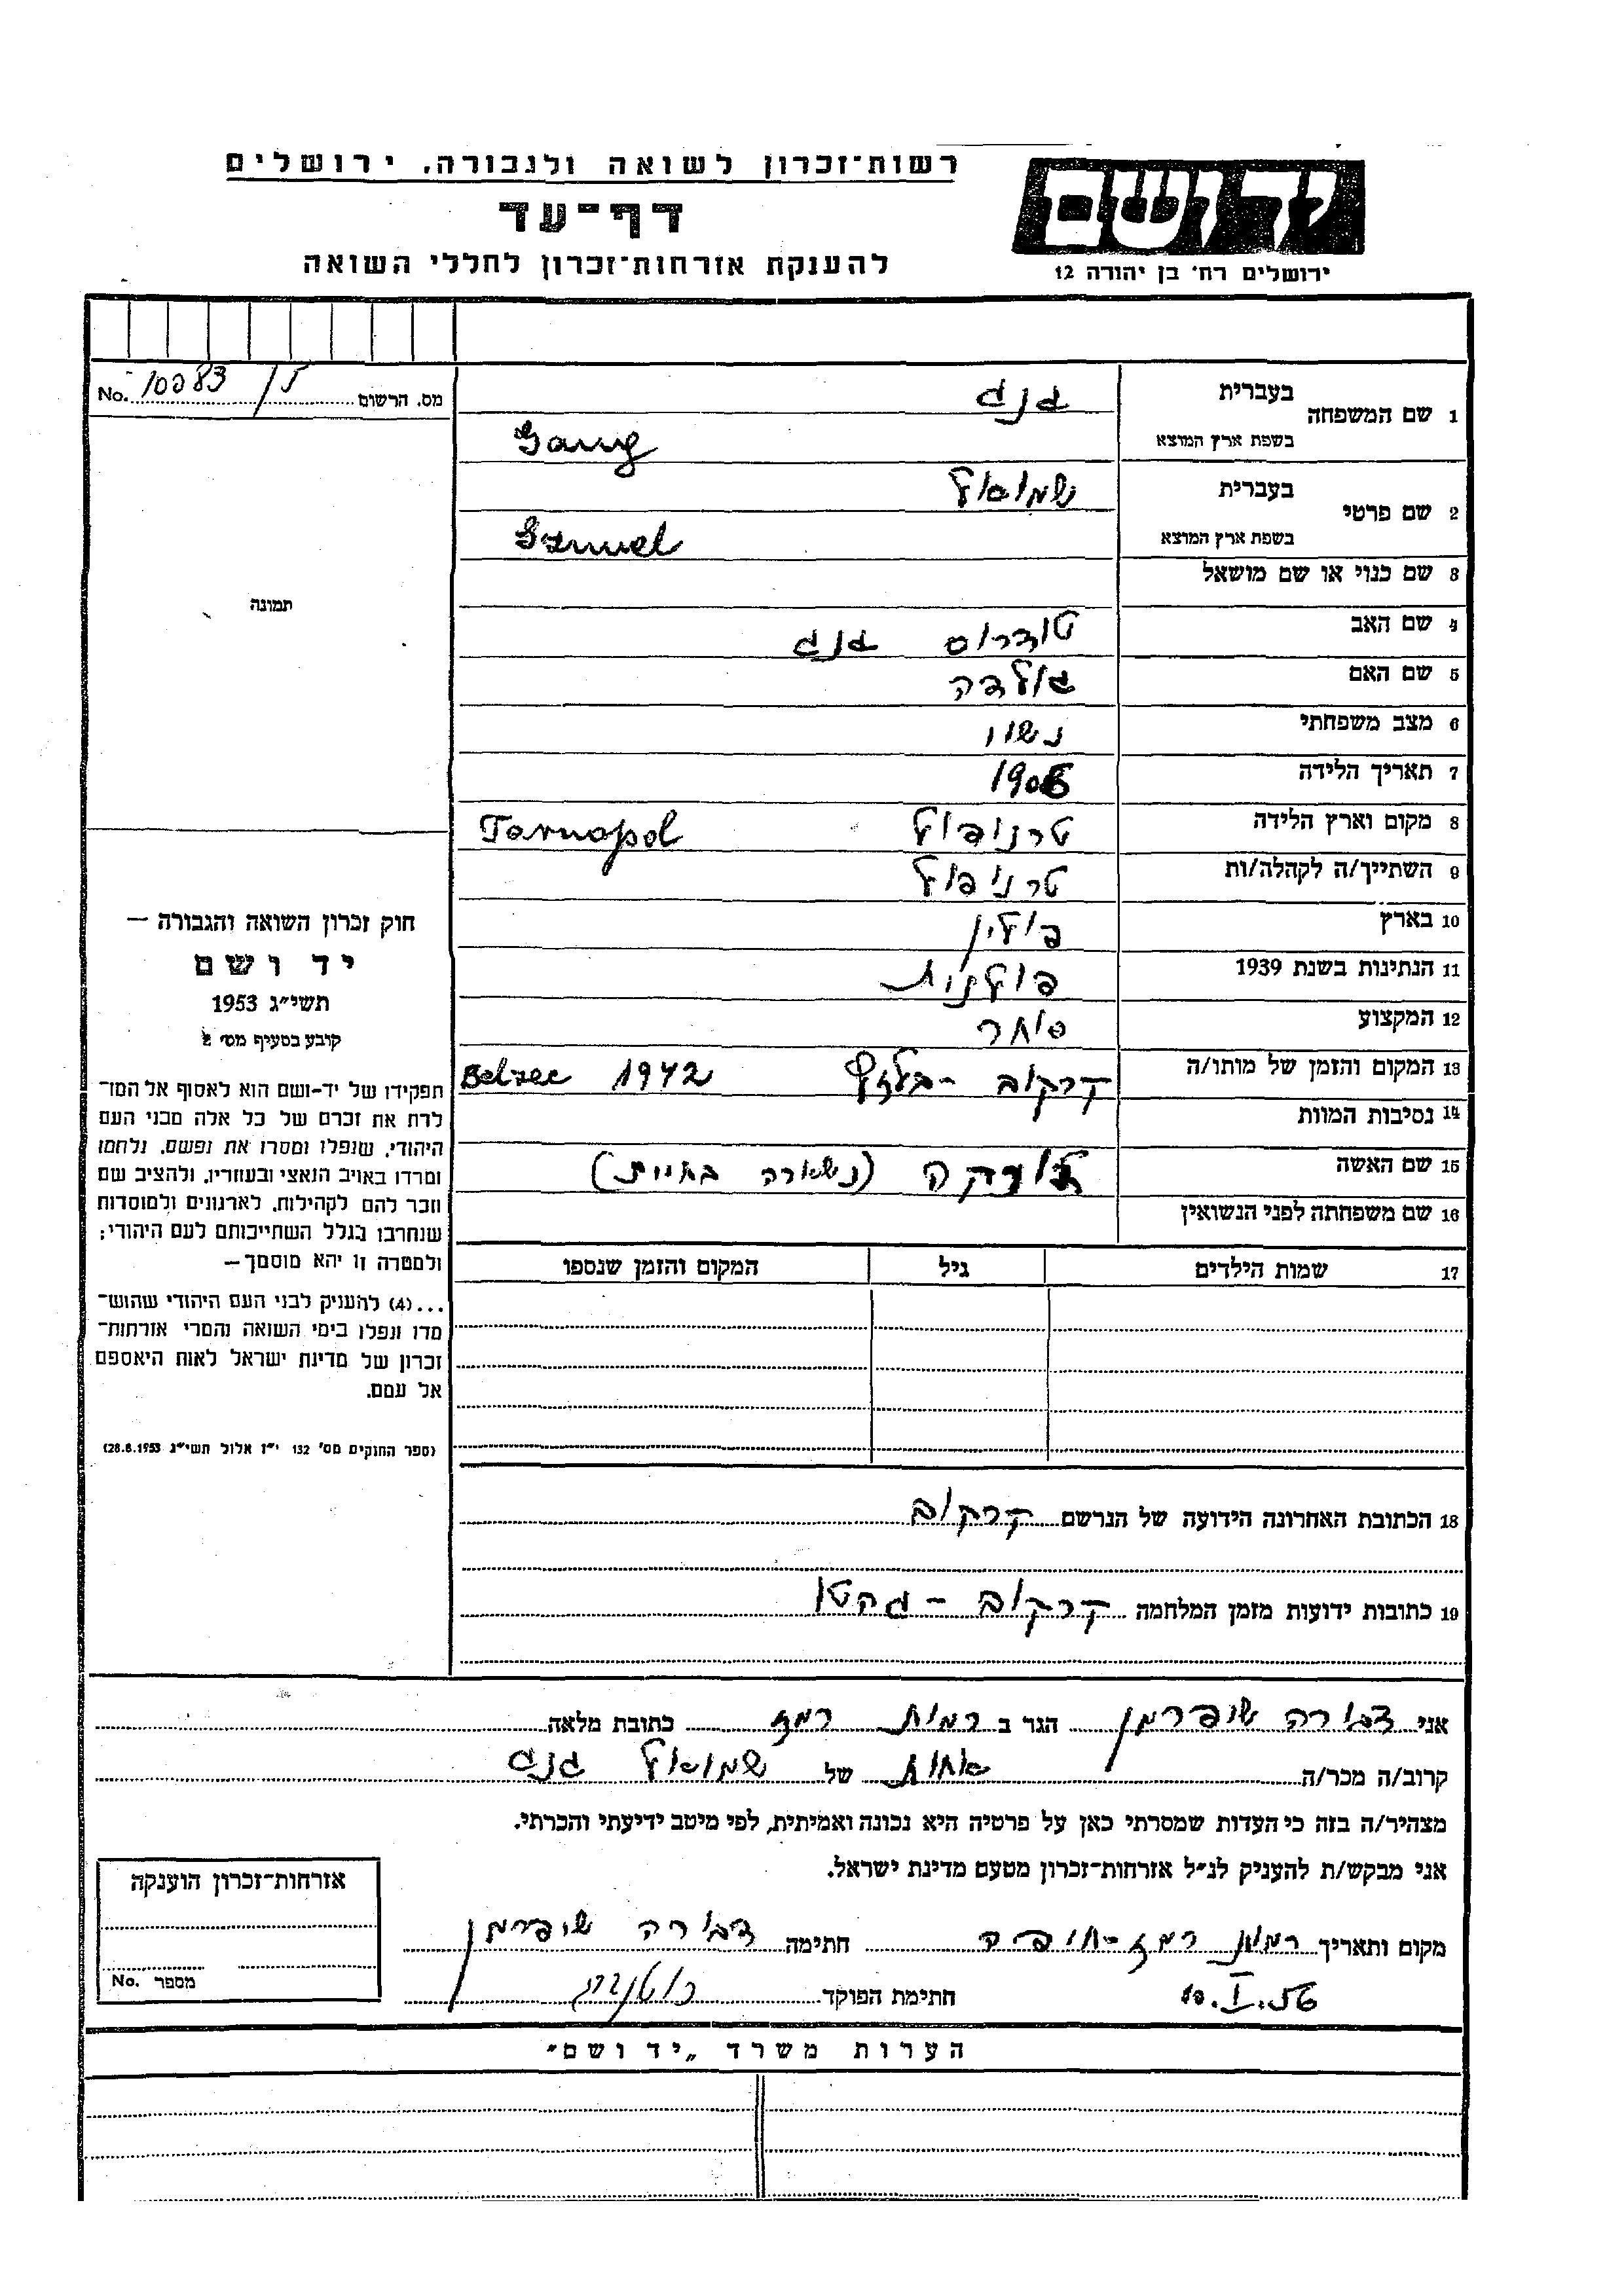 רשות־זכרון לשואה ולגבורה, ירושלים
דף־עד
להענקת אזרחות־זכרון לחללי השואה
יד ושם
ירושלים רח' בן יהודה 12
מס. הרשום 10283/5 No.
1 שם המשפחה
בעברית גנג
בשפת ארץ המוצא Gang
2 שם פרטי
בעברית שמואל
בשפת ארץ המוצא Szmuel
3 שם כנוי או שם מושאל
4 שם האב טודרוס גנג
5 שם האם גולדה
6 מצב משפחתי נשוי
7 תאריך הלידה
8 מקום וארץ הלידה טרנופול Tarnopol
9 השתייך/ה לקהלה/ות טרנופול
10 בארץ פולין
11 הנתינות בשנת 1939 פולנית
12 המקצוע סוחר
13 המקום והזמן של מותו/ה קרקוב - בלזץ 1942 Belzec
14 נסיבות המוות
15 שם האשה (נשארה בחיים)
16 שם משפחתה לפני הנשואין
17 שמות הילדים גיל המקום והזמן שנספו
18 הכתובת האחרונה הידועה של הנרשם קרקוב
19 כתובות ידועות מזמן המלחמה קרקוב - גהטו
תמונה
חוק זכרון השואה והגבורה —
יד ושם
תשי״ג 1953
קובע בסעיף מס׳ 2
תפקידו של יד-ושם הוא לאסוף אל המו־
לדת את זכרם של כל אלה מבני העם
היהודי, שנפלו ומסרו את נפשם, נלחמו
ומרדו באויב הנאצי ובעוזריו, ולהציב שם
וזכר להם לקהילות, לארגונים ולמוסדות
שנחרבו בגלל השתייכותם לעם היהודי;
ולמטרה זו יהא מוסמך —
...(4) להעניק לבני העם היהודי שהוש־
מדו ונפלו בימי השואה והמרי אזרחות־
זכרון של מדינת ישראל לאות היאספם
אל עמם.
(ספר החוקים מס׳ 132 י״ז אלול תשי״ג 28.8.1953)
אני דבורה שופרמן הגר ב רמות רמז כתובת מלאה
קרוב/ה מכר/ה אחות של שמואל גנג
מצהיר/ה בזה כי העדות שמסרתי כאן על פרטיה היא נכונה ואמיתית, לפי מיטב ידיעתי והכרתי.
אני מבקש/ת להעניק לנ״ל אזרחות־זכרון מטעם מדינת ישראל.
מקום ותאריך רמות רמז - חיפה חתימה דבורה שופרמן
10.I.56 חתימת הפוקד
אזרחות־זכרון הוענקה
מספר No.
הערות משרד „יד ושם״